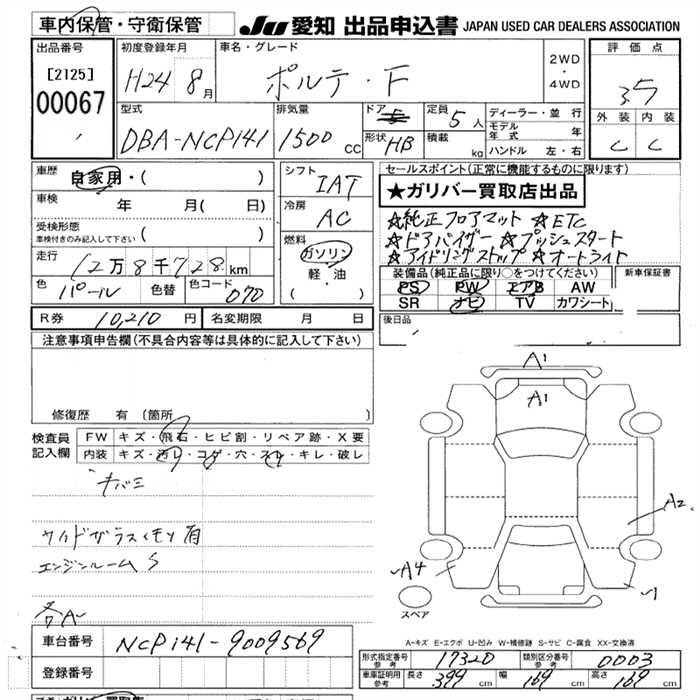 車内保管・守衛保管
JU 愛知 出品申込書 JAPAN USED CAR DEALERS ASSOCIATION
出品番号
[2125]
00067
初度登録年月
H24 8月
車名・グレード
ポルテ・F
2WD
・
4WD
評価点
3.5
外装 内装
C C
型式
DBA-NCP141
排気量
1500 CC
ドア 5
形状 HB
定員 5人
積載 kg
ディーラー・並行
モデル年式 年
ハンドル 左・右
車歴
自家用・( )
車検
年 月( 日)
受検形態
車検付きのみ記入して下さい ( )
走行
12万8千728km
色 パール 色替 色コード 070
シフト
IAT
冷房
AC
燃料
ガソリン
軽・油
( )
セールスポイント(正常に機能するものに限ります)
★ガリバー買取店出品
☆純正フロアマット ☆ETC
☆ドアバイザー ☆プッシュスタート
☆アイドリングストップ ☆オートライト
装備品(純正品に限り○をつけてください)
PS PW エアB AW
SR ナビ TV カワシート
新車保証書
後日品
R券 10,210円 名変期限 月 日
注意事項申告欄(不具合内容等は具体的に記入して下さい)
修復歴 有 (箇所 )
検査員
記入欄
FW キズ・飛石・ヒビ割・リペア跡・X要
内装 キズ・汚レ・コゲ・穴・スレ・キレ・破レ
ナバミ
サイドガラスくもり有
エンジンルームS
各A~
A1
A1
A2
A4
~1
スペア
A-キズ E-エクボ U-凹み W-補修跡 S-サビ C-腐食 XX-交換済
車台番号 NCP141-9009569
登録番号
形式指定番号 参考 17320 類別区分番号 参考 0003
車庫証明用 参考 長さ 399cm 幅 169cm 高さ 169cm